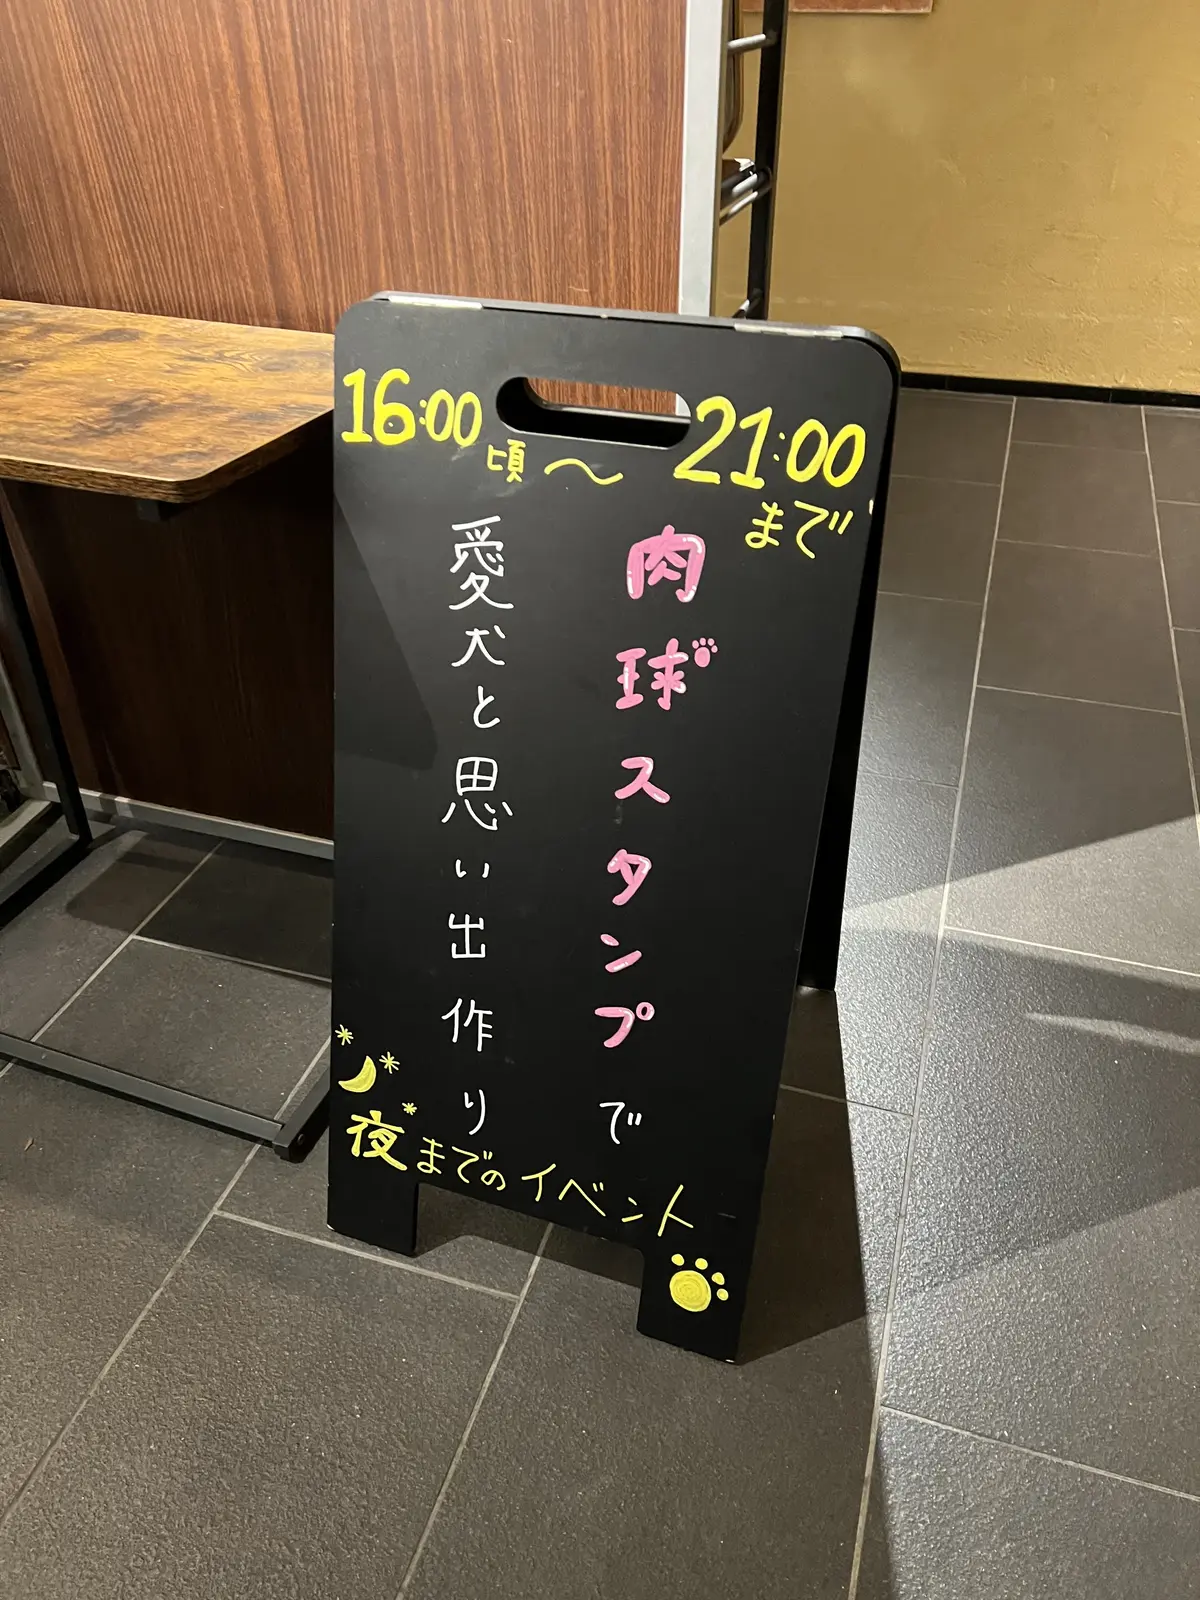 16:00頃〜21:00まで
肉球スタンプで
愛犬と思い出作り
夜までのイベント